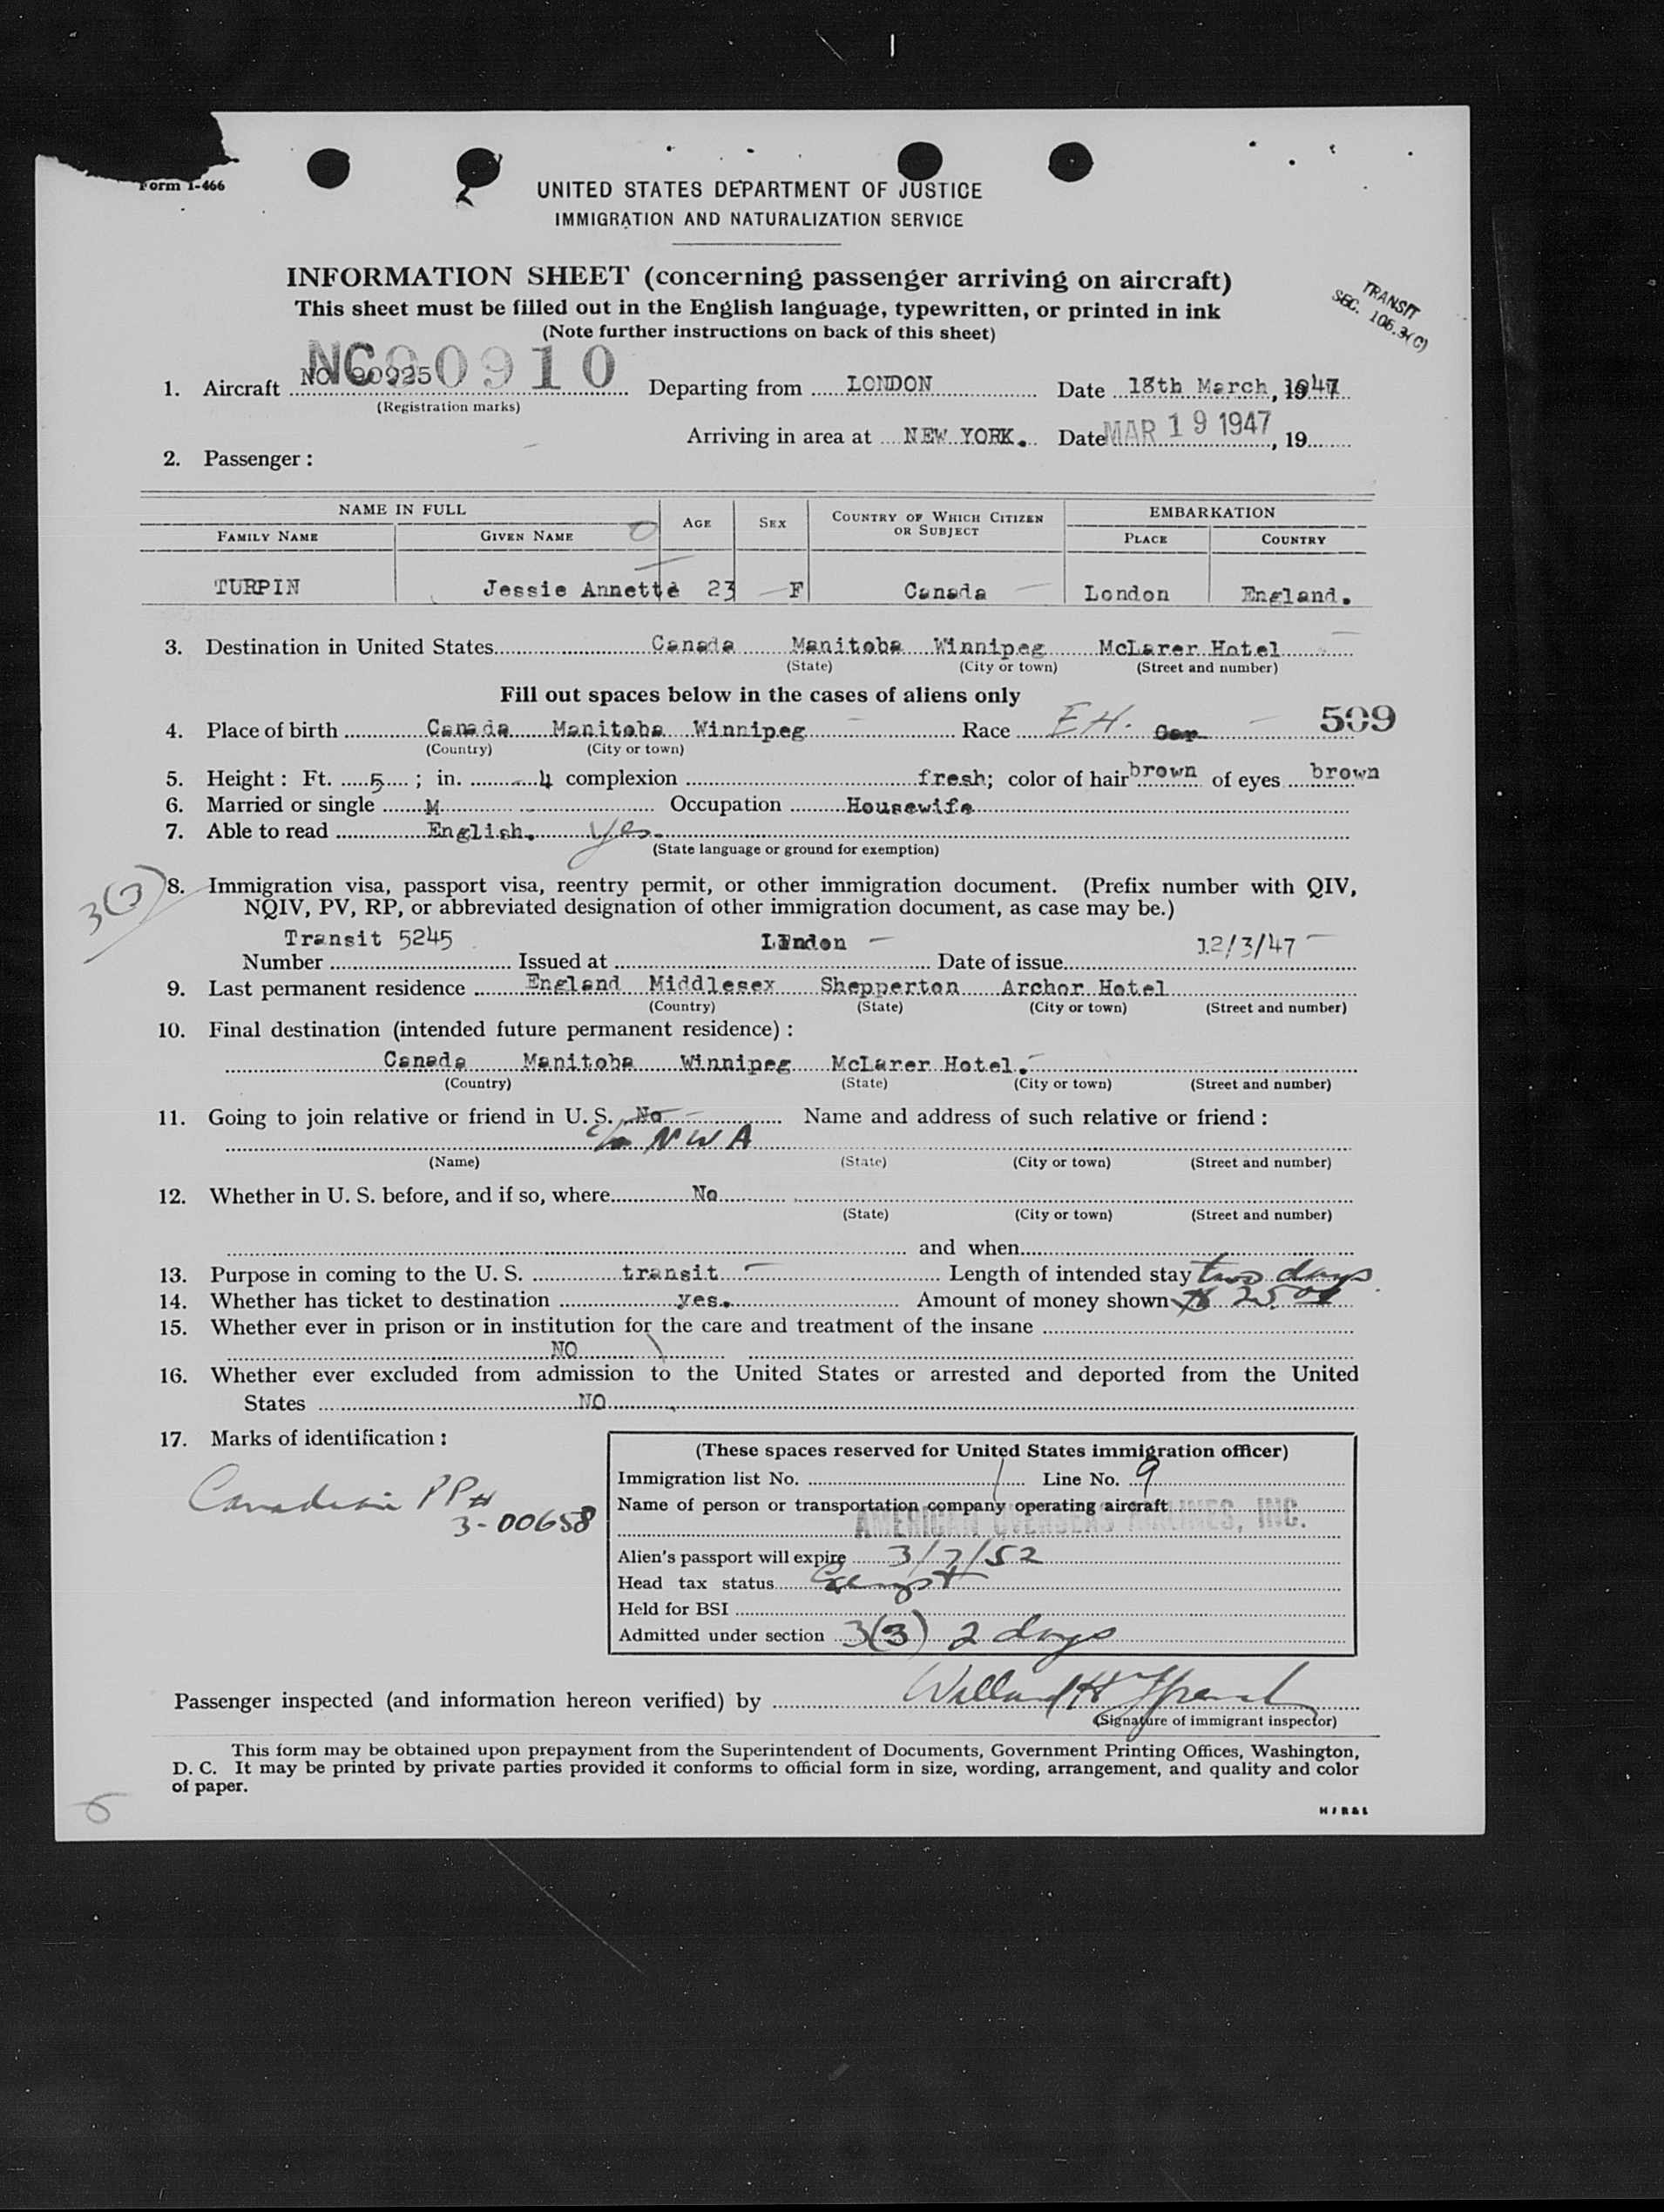 Form I-466
UNITED STATES DEPARTMENT OF JUSTICE
IMMIGRATION AND NATURALIZATION SERVICE
INFORMATION SHEET (concerning passenger arriving on aircraft)
This sheet must be filled out in the English language, typewritten, or printed in ink
(Note further instructions on back of this sheet)
TRANSIT
SEC. 106.3(C)
1. Aircraft NC 90910 Departing from LONDON Date 18th March, 1947
(Registration marks)
Arriving in area at NEW YORK. Date MAR 19 1947, 19
2. Passenger:
NAME IN FULL AGE SEX COUNTRY OF WHICH CITIZEN OR SUBJECT EMBARKATION
FAMILY NAME GIVEN NAME PLACE COUNTRY
TURPIN Jessie Annette 23 F Canada London England.
3. Destination in United States Canada Manitoba Winnipeg McLarer Hotel
(State) (City or town) (Street and number)
Fill out spaces below in the cases of aliens only
509
4. Place of birth Canada Manitoba Winnipeg Race
(Country) (City or town)
5. Height: Ft. 5; in. 4 complexion fresh; color of hair brown of eyes brown
6. Married or single M Occupation Housewife
7. Able to read English. yes.
(State language or ground for exemption)
3(3)
8. Immigration visa, passport visa, reentry permit, or other immigration document. (Prefix number with QIV,
NQIV, PV, RP, or abbreviated designation of other immigration document, as case may be.)
Number Transit 5245 Issued at London Date of issue 12/3/47
9. Last permanent residence England Middlesex Shepperton Archor Hotel
(Country) (State) (City or town) (Street and number)
10. Final destination (intended future permanent residence):
Canada Manitoba Winnipeg McLarer Hotel.
(Country) (State) (City or town) (Street and number)
11. Going to join relative or friend in U. S. No Name and address of such relative or friend:
c/o NWA
(Name) (State) (City or town) (Street and number)
12. Whether in U. S. before, and if so, where No
(State) (City or town) (Street and number)
and when
13. Purpose in coming to the U. S. transit Length of intended stay two days
14. Whether has ticket to destination yes. Amount of money shown $ 25.00
15. Whether ever in prison or in institution for the care and treatment of the insane
NO
16. Whether ever excluded from admission to the United States or arrested and deported from the United
States NO
17. Marks of identification:
Canadian PP#
3-00658
(These spaces reserved for United States immigration officer)
Immigration list No. 1 Line No. 9
Name of person or transportation company operating aircraft
AMERICAN OVERSEAS AIRLINES, INC.
Alien's passport will expire 3/7/52
Head tax status Exempt
Held for BSI
Admitted under section 3(3) 2 days
Passenger inspected (and information hereon verified) by
(Signature of immigrant inspector)
This form may be obtained upon prepayment from the Superintendent of Documents, Government Printing Offices, Washington,
D. C. It may be printed by private parties provided it conforms to official form in size, wording, arrangement, and quality and color
of paper.